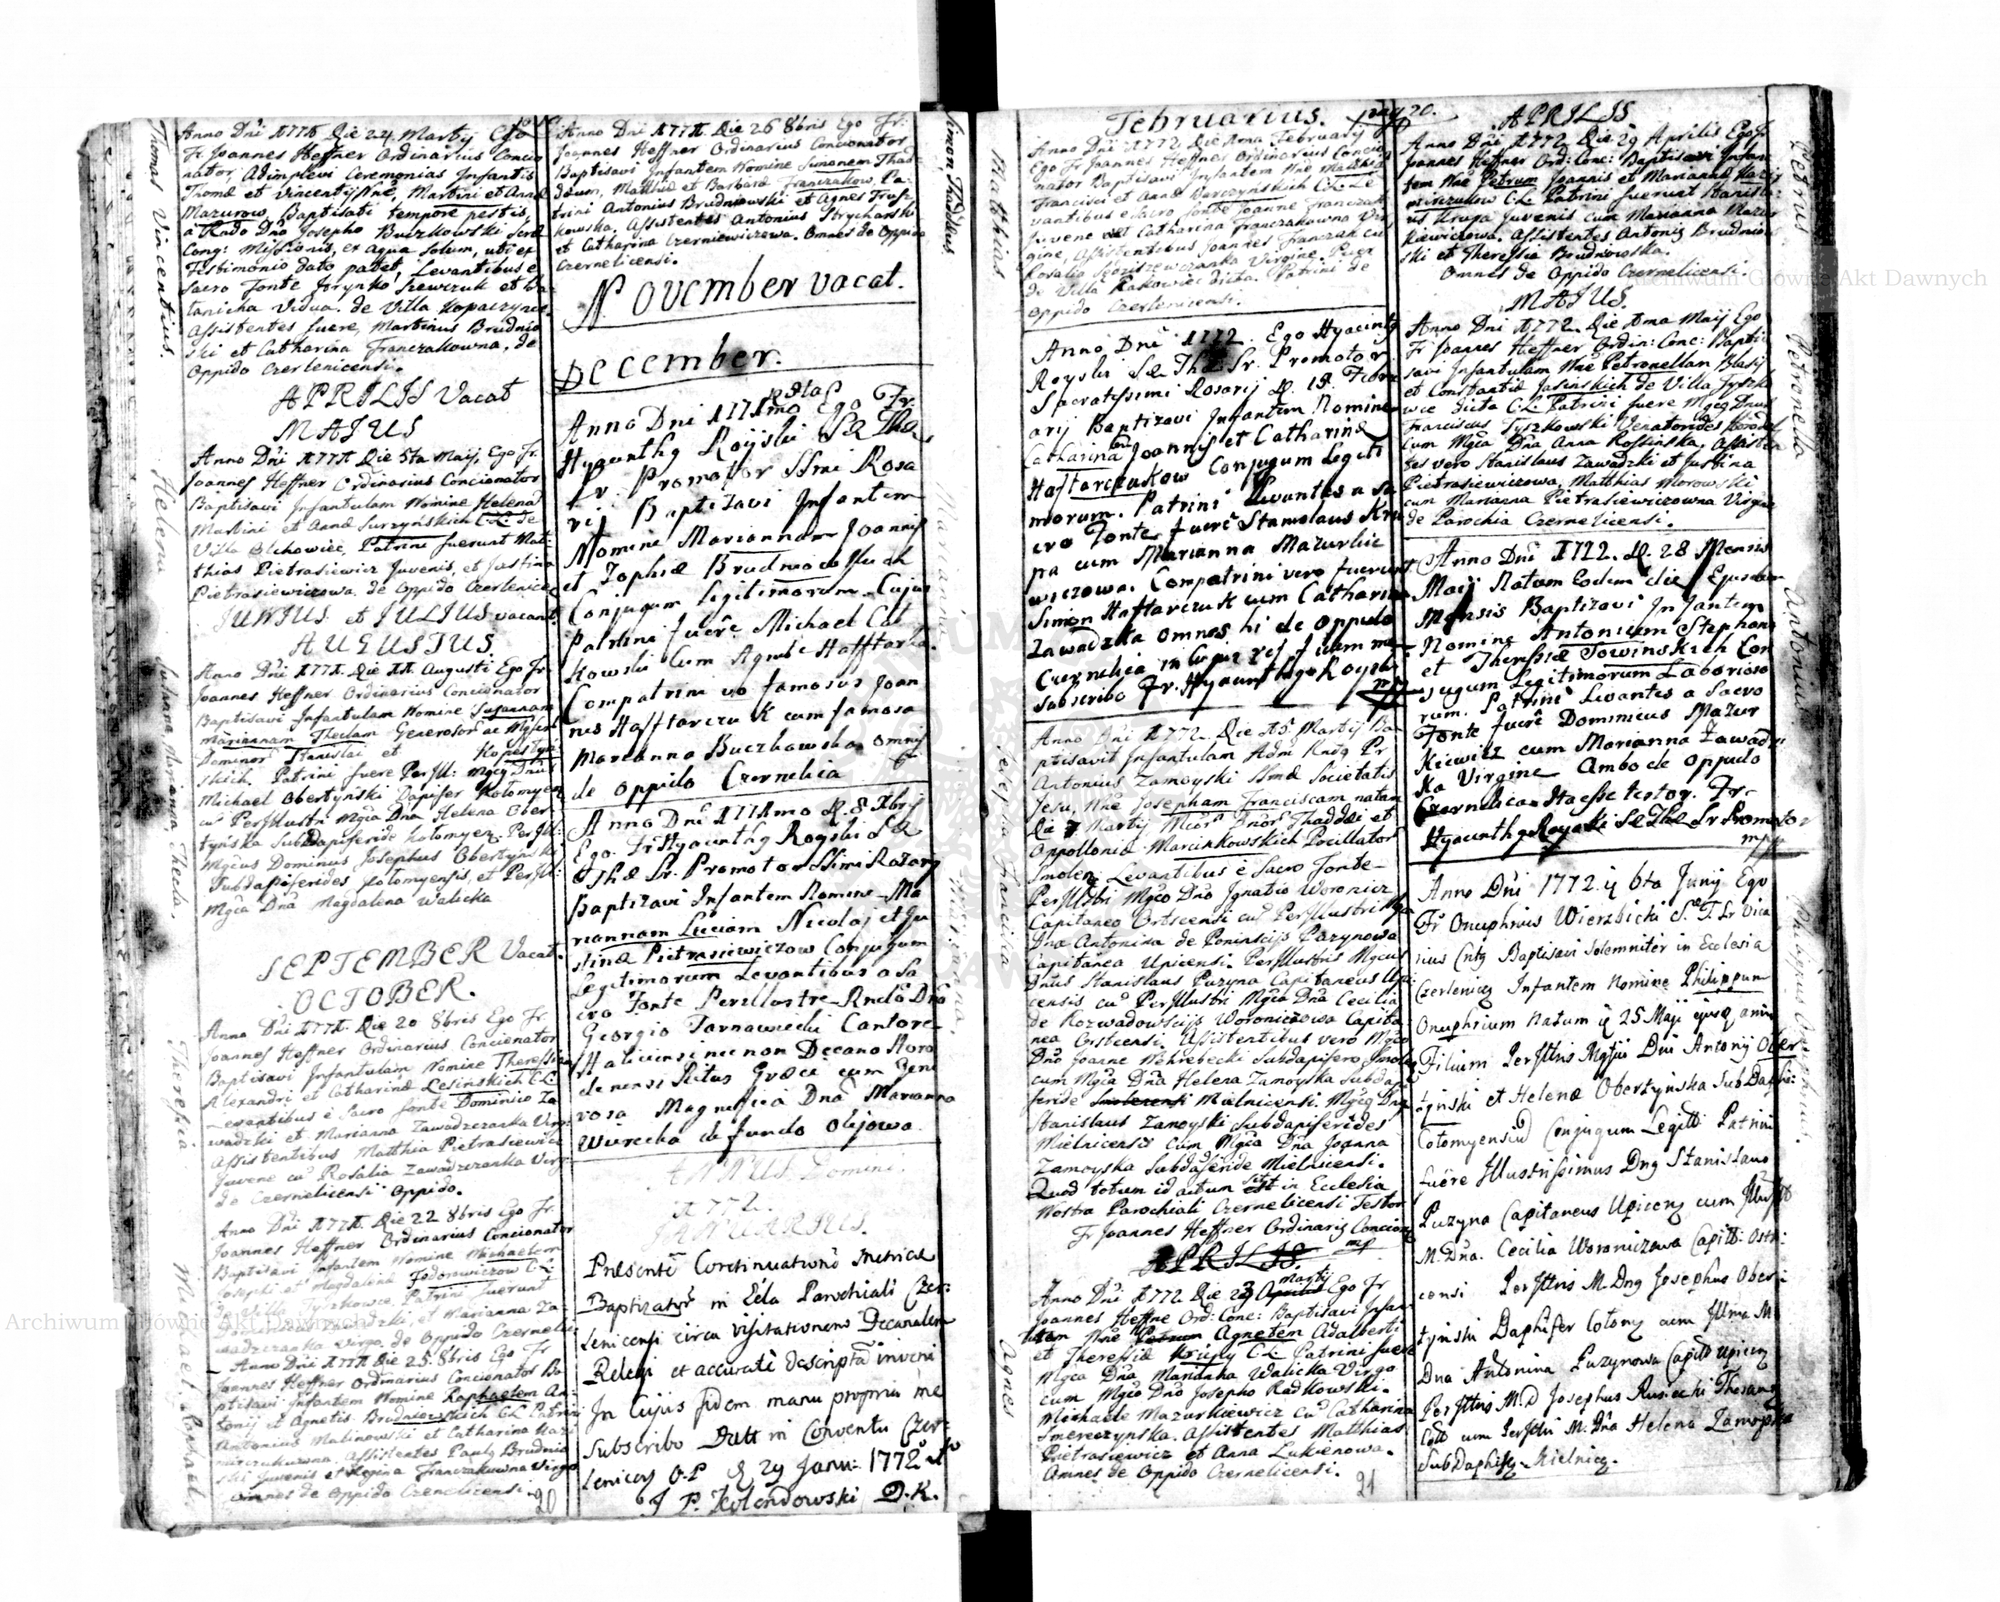 Thomas Vincentius.
Anno Dñi 1771 Die 24 Martij Ego
Fr. Joannes Heffner Ordinarius Concio
nator, Adimplevi Ceremonias Infantis
Thomæ et Vincentij Nñe, Martini et Annæ
Mazurow, Baptisati tempore pestis,
à Rndo Dño Josepho Buczkowski
Cong: Missionis, ex aqua solum, uti ex
Testimonio dato patet, Levantibus e
Sacro Fonte Hrynko Szewczuk et
Vidua. de Villa Kopaczynce.
Assistentes fuere, Martinus Brudnic
ski et Catharina Franczakowna, de
Oppido Czerlenicensi.
APRILIS Vacat
MAJUS
Helena
Anno Dñi 1771 Die 5ta Maij, Ego Fr.
Joannes Heffner Ordinarius Concionator
Baptisavi Infantulam Nomine Helena
Martini et Annæ Surzynskich C.L. de
Villa Olchowiec, Patrini fuerunt Mat-
thias Pietrasiewicz Juvenis, et Justina
Pietrasiewiczowa. de Oppido Czerlenice
JUNIUS et JULIUS vacant
AUGUSTUS.
Susanna, Marianna, Thecla.
Anno Dñi 1771. Die 11. Augusti Ego Fr.
Joannes Heffner Ordinarius Concionator
Baptisavi Infantulam Nomine Susannam
Mariannam Theclam Generosor: ac Mgfcor:
Dominor: Stanislai et Kopestyn
skich. Patrini fuere Perjll: Mgcq Dñus
Michael Obertynski Dapifer Kolomyen
cu Perjllustri Mgca Dña Helena Ober
tynska SubDapiferide Kolomyen. Perjll:
Mgcus Dominus Josephus Obertynski
Subdapiferides Kolomyensis, et Perjll:
Mgca Dña Magdalena Walicka
SEPTEMBER Vacat.
OCTOBER.
Theressia
Anno Dñi 1771. Die 20 8bris Ego Fr
Joannes Heffner Ordinarius Concionator
Baptisavi Infantulam Nomine Theressam
Alexandri et Catharinæ Lesinskich C.L.
Levantibus e Sacro fonte Dominico Za
wadzki et Marianna Zawadzczanka Virg:
Assistentibus Matthia Pietrasiewicz
Juvene cu Rosalia Zawadzczanka Virg.
de Czernelicensi Oppido.
Michael.
Anno Dñi 1771. Die 22 8bris Ego Fr.
Joannes Heffner Ordinarius Concionator
Baptisavi Infantem Nomine Michaelem
Josephi et Magdalenæ Fedorowiczow C.L.
de Villa Tyszkowce, Patrini fuerunt
Dominicus Zawadzki, et Marianna Za-
wadzczanka Virgo, de Oppido Czernelic
Raphael.
Anno Dñi 1771 Die 25. 8bris Ego Fr
Joannes Heffner Ordinarius Concionator Ba
ptisavi Infantem Nomine Raphaelem An
tonij et Agnetis Brudniczskich C.L. Patrini
Antonius Malinowski et Catharina Kaz
mirczukowna. Assistentes Paulq Brudnic
ski Juvenis et Regina Franczakowna Virgo
omnes de Oppido Czernelicensi.
20
Simon Thaddæus.
Anno Dñi 1771. Die 26 8bris Ego Fr.
Joannes Heffner Ordinarius Concionator
Baptisavi Infantem Nomine Simonem Thad
dæum, Matthiæ et Barbaræ Franczakow. Pa-
trini Antonius Brudniowski et Agnes Trus-
kowska, Assistentes Antonius Strycharski
et Catharina Czerniewiczowa. Omnes de Oppido
Czernelicensi.
November vacat.
December.
Marianna
Anno Dni 1771mo Ego Fr.
Hyacinthq Royski
Promotor SSmi Rosa
rij Baptizavi Infantem
Nomine Mariannam Joannis
et Zophiæ Brudniowskich
Conjugum Legitimorum. Cujus
Patrini fuere Michael Cut
kowski Cum Agnete Hafftarka.
Compatrini vo famosus Joan
nes Hafftarczuk cum famosa
Marianna Buczkowska omnes
de oppido Czernelica
Marianna.
Anno Dni 1771mo d. 8 Xbris
Ego Fr Hyacinthq Royski
Promotor SSmi Rosarij
Baptizavi Infantem Nomine Ma
riannam Luciam Nicolai et Ju
stinæ Pietrasiewiczow Conjugum
Legitimorum Levantibus a Sa
cro Fonte Perillustre Rndo Dno
Georgio Tarnawiecki Cantore
Haliciensi nec non Decano Horo
denensi Ritus Græci cum Gene
rosa Magnifica Dña Marianna
Wirecka de fundo Olijowa.
ANNUS Domini.
1772.
JANUARIUS.
Presente Continuatione Metricæ
Baptizator in Ecla Parochiali Czer:
lenicensi circa Visitationem Decanalem
Relegi et accurate descriptã inveni
In Cujus fidem manu propria me
Subscribo Datt in Conventu Czer-
lenicen O.P. d. 29 Janu: 1772
J P. Kolendowski D.K.
Februarius. pag 20.
Matthias
Anno Dñi 1772 Die 2ma Februarij
Ego Fr Joannes Heffner Ordinarius Concio
nator Baptisavi Infantem Nñe Matthia
Francisci et Annæ Barczynskich C.L. Le
vantibus e sacro fonte Joanne Franczak
Juvene et Catharina Franczakowna Vir
gine, Assistentibus Joannes Franczak cu
Rosalia Koziszewczanka Virgine. Puer
de Villa Rakowiec dicta. Patrini de
Oppido Czerlenicensi.
Anno Dni 1772. Ego Hyacintq
Royski Promotor
Sacratissimi Rosarij d. 15 Febru
arij Baptizavi Infantem Nomine
Catharina Joannis et Catharinæ
Haftarczukow Conjugum Legiti
morum. Patrini Levantes a Sa
cro Fonte fuere Stanislaus Kru
pa cum Marianna Mazurkie
wiczowa. Compatrini vero fuerunt
Simon Haftarczuk cum Catharina
Zawadzka omnes hi de oppido
Czernelica in Cujus rei fidem me
Subscribo Fr. Hyacinthq Royski
mpp
Josepha Francisca
Anno Dñi 1772. Die 15. Martij Ba
ptisavit Infantulam Adm Rndq Pr
Antonius Zamoyski Stmæ Societatis
Jesu, Nñe Josepham Franciscam natam
Die 7 Martij Mcor Dnor Thaddei et
Oppolloniæ Marcinkowskich Pocillator
Smolen. Levantibus è Sacro Fonte
Perjllstri Mgco Dño Ignatio Woronicz
Capitaneo Ortscensi cu Perjllustri Mgca
Dña Antonina de Poninscijs Puzynowa
Capitanea Upicensi. Perjllustris Mgcus
Dñus Stanislaus Puzyna Capitaneus Upi
censis cu Perjllustri Mgca Dña Cecilia
de Rozwadowscijs Woroniczowa Capita
nea Orstcensi. Assistentibus vero Mgco
Dño Joanne Nehrebecki Subdapifero Smolen
cum Mgca Dña Helena Zamoyska Subdapi
feride Mielnicensi. Mgcq Dnq
Stanislaus Zamoyski Subdapiferides
Mielnicensis Cum Mgca Dña Joanna
Zamoyska Subdapiferide Mielnicensi.
Quod totum id actum sit in Ecclesia
Nostra Parochiali Czernelicensi Testor
Fr Joannes Heffner Ordinariq Concion
mp
APRILIS.
Agnes
Anno Dñi 1772. Die 23 Martij Ego Fr
Joannes Heffne Ord: Conc: Baptisavi Infan
tulam Nñe Agnetem Adalberti
et Theressiæ Krupy C.L. Patrini fuere
Mgca Dña Marianna Walicka Virgo
cum Mgco Dño Josepho Radkowski.
Michaele Mazurkiewicz cu Catharina
Smereczynska. Assistentes Matthias
Pietrasiewicz et Anna Lukienowa.
Omnes de Oppido Czernelicensi.
21
APRILIS
Petrus.
Anno Dñi 1772. Die 29 Aprilis Ego Fr
Joannes Heffner Ord: Conc: Baptisavi Infan
tem Nñe Petrum Joannis et Mariannæ Kazi
mirczukow C.L. Patrini fuerunt Stanisla
us Krupa Juvenis cum Marianna Mazur
kiewiczowa. Assistentes Antonig Brudnio
ski et Theressia Brudnowska.
Omnes de Oppido Czernelicensi.
MAJUS.
Petronella
Anno Dni 1772. Die 1ma Maij Ego
Fr Joannes Heffner Ordin: Conc: Bapti
savi Infantulam Nñe Petronellam Blasij
et Constantiæ Jasinskich de Villa Tyszko
wce dicta C.L. Patrini fuere Mgcq Dnus
Franciscus Tyszkowski Venatorides
Cum Mgca Dña Anna Rossinska, Assisten
tes vero Stanislaus Zawadzki et Justina
Pietrasiewiczowa, Matthias Morowski
cum Marianna Pietrasiewiczowna Virgine
de Parochia Czernelicensi.
Antonius.
Anno Dni 1772. d. 28 Mensis
Maij Natum Eodem die Ejusdem
Mensis Baptizavi Infantem
Nomine Antonium Stephani
et Theresiæ Sowinskich Con
jugum Legitimorum Laborioso
rum. Patrini Levantes a Sacro
Fonte fuere Dominicus Mazur
kiewicz cum Marianna Zawadz
ka Virgine Ambo de oppido
Czernelica Ita esse testor. Fr.
Hyacinthq Royski Promotor
mpp
Philippus Onuphrius.
Anno Dñi 1772. 6ta Junij Ego
Fr Onuphrius Wierzbicki Vica
rius Baptisavi Solemniter in Ecclesia
Czerlenicz Infantem Nomine Philippum
Onuphrium natum 25 Maji ejusq anni
Filium Perjlltris Mgfici Dni Antonij Ober
tynski et Helenæ Obertynska SubDapife:
Cotomyensiu Conjugum Legitt Patrini
fuere Illustrissimus Dnq Stanislaus
Puzyna Capitaneus Upicen cum
M. Dña. Cecilia Woroniczowa Capitt: Ostr:
censi Perjlltris M. Dnq Josephus Ober
tynski Daphifer Cotomy cum Jllma M
Dna Antonina Puzynowa Capitt Upicen
Perjlltris M. D Josephus Rusiecki Thesaur
Cott cum Perjlltri M. Dña Helena Zamoyska
SubDaphifer Mielnicz.
Archiwum Główne Akt Dawnych
Archiwum Główne Akt Dawnych